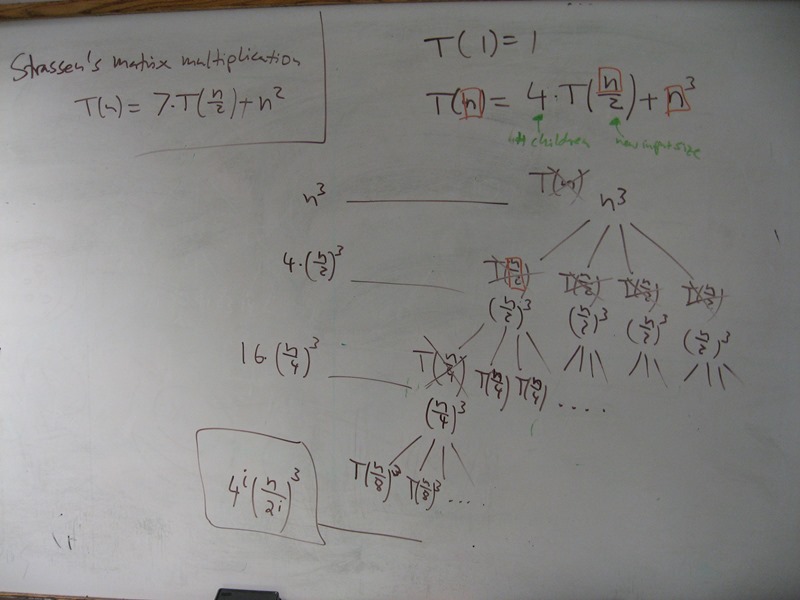 Strassen's matrix multiplication
T(n) = 7·T(n/2) + n²
T(1) = 1
T(n) = 4·T(n/2) + n³
# children
new input size
T(n)
n³
n³
4·(n/2)³
T(n/2) T(n/2) T(n/2) T(n/2)
(n/2)³ (n/2)³ (n/2)³ (n/2)³
16·(n/4)³
T(n/4) T(n/4) T(n/4) ....
(n/4)³
T(n/8)³ T(n/8)³ ....
4^i (n/2^i)³